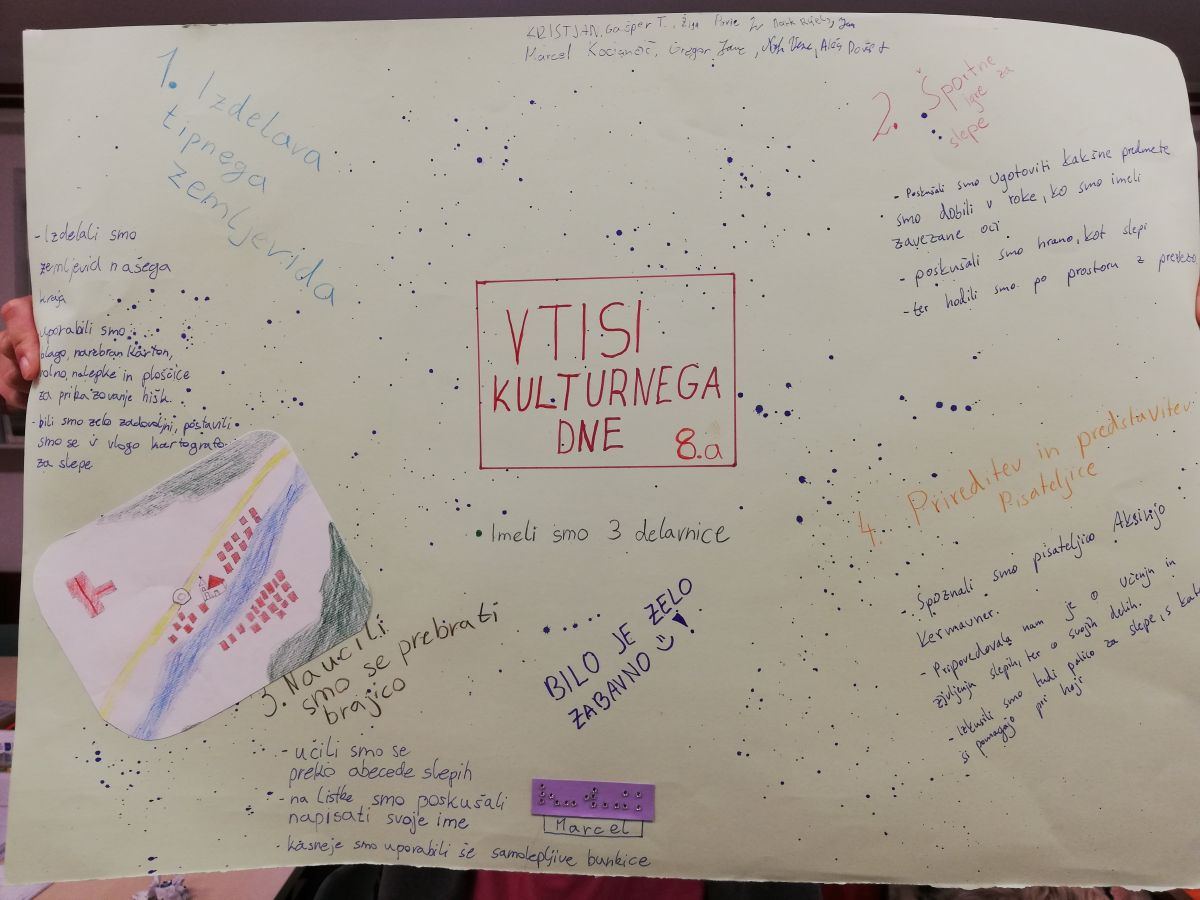 KRISTJAN, Gašper T., Žiga
Marcel Kocjančič, Gregor
1. Izdelava
tipnega
zemljevida
- Izdelali smo
zemljevid našega
kraja
uporabili smo
blago, narebran karton,
volno, nalepke in ploščice
za prikazovanje hišk.
bili smo zelo zadovoljni, postavili
smo se v vlogo kartografov
za slepe
2. Športne
igre za
slepe
- Poskušali smo ugotoviti kakšne predmete
smo dobili v roke, ko smo imeli
zavezane oči.
- poskušali smo hrano, kot slepi
ter hodili smo po prostoru z prevezo
VTISI
KULTURNEGA
DNE 8.a
• Imeli smo 3 delavnice
BILO JE ZELO
ZABAVNO!
3. Naučili
smo se prebirati
brajico
- učili smo se
preko abecede slepih
- na listke smo poskušali
napisati svoje ime
- kasneje smo uporabili še samolepljive bunkice
Marcel
4. Prireditev in predstavitev
Pisateljice
- Spoznali smo pisateljico Aksinjo
Kermauner.
- Pripovedovala nam je o učenju in
življenju slepih, ter o svojih delih.
- Izkusili smo tudi palico za slepe, s kat
si pomagajo pri hoji